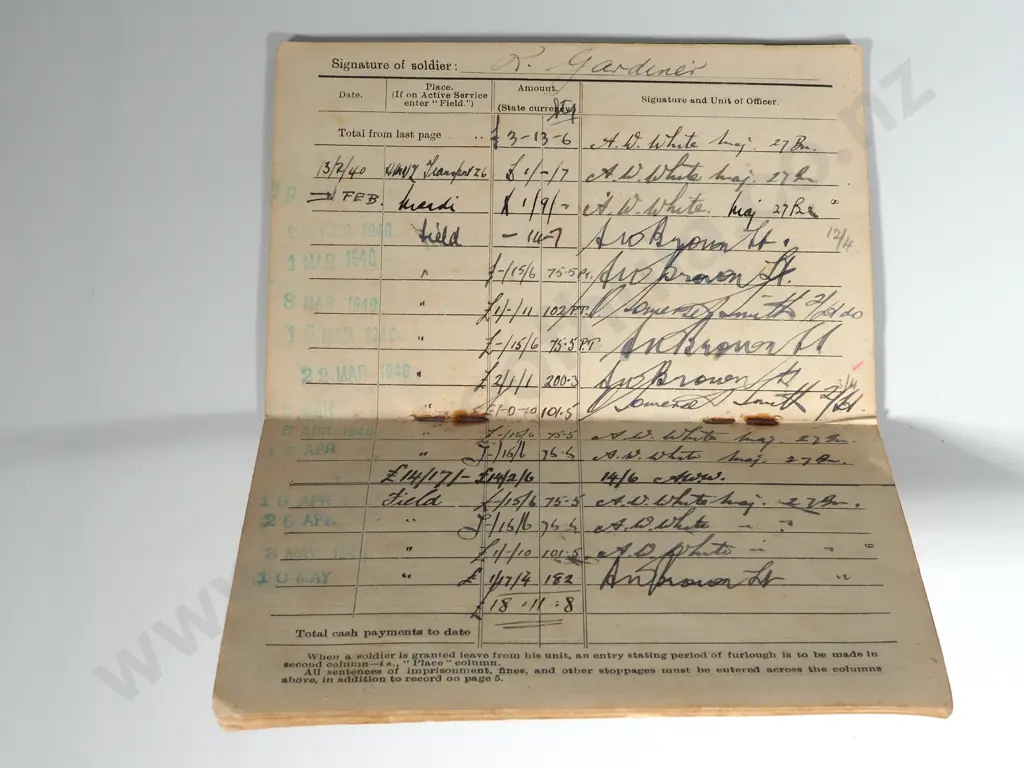 Signature of soldier: R. Gardiner
Date. Place. (If on Active Service enter "Field.") Amount. (State currency) Stg Signature and Unit of Officer.
Total from last page .. £3-13-6 A. W. White Maj. 27 Bn.
13/2/40 HMNZ Transport Z6 £1/-/7 A. W. White Maj. 27 Bn
FEB. Maadi £1/9/- A. W. White. Maj 27 Bn "
FEB 1940 Field - 14-7 Brown Lt. 12/4
1 MAR 1940 " £-/15/6 75·5 Pt. Brown Lt.
8 MAR 1940 " £1/-/11 102 P.T. Somerset Smith 2/Lt
MAR 1940 " £-/15/6 75·5 P.T Brown Lt
22 MAR 1940 " £2/1/1 200·3 Brown Lt
MAR " £1-0-10 101.5 Somerset Smith 2/Lt
5 APR 1940 " £-/15/6 75·5 A. W. White Maj. 27 Bn.
APR " £-/15/6 75·5 A. W. White Maj. 27 Bn.
£14/17/- £14/2/6 14/6 AWW.
19 APR Field £-/15/6 75·5 A. W. White Maj. 27 Bn.
26 APR " £-/15/6 75·5 A. W. White " "
3 MAY 1940 " £1/-/10 101·5 A. W. White " " "
10 MAY " £1/17/4 182 Brown Lt "
£18·11·8
Total cash payments to date
When a soldier is granted leave from his unit, an entry stating period of furlough is to be made in
second column—i.e., "Place" column.
All sentences of imprisonment, fines, and other stoppages must be entered across the columns
above, in addition to record on page 5.